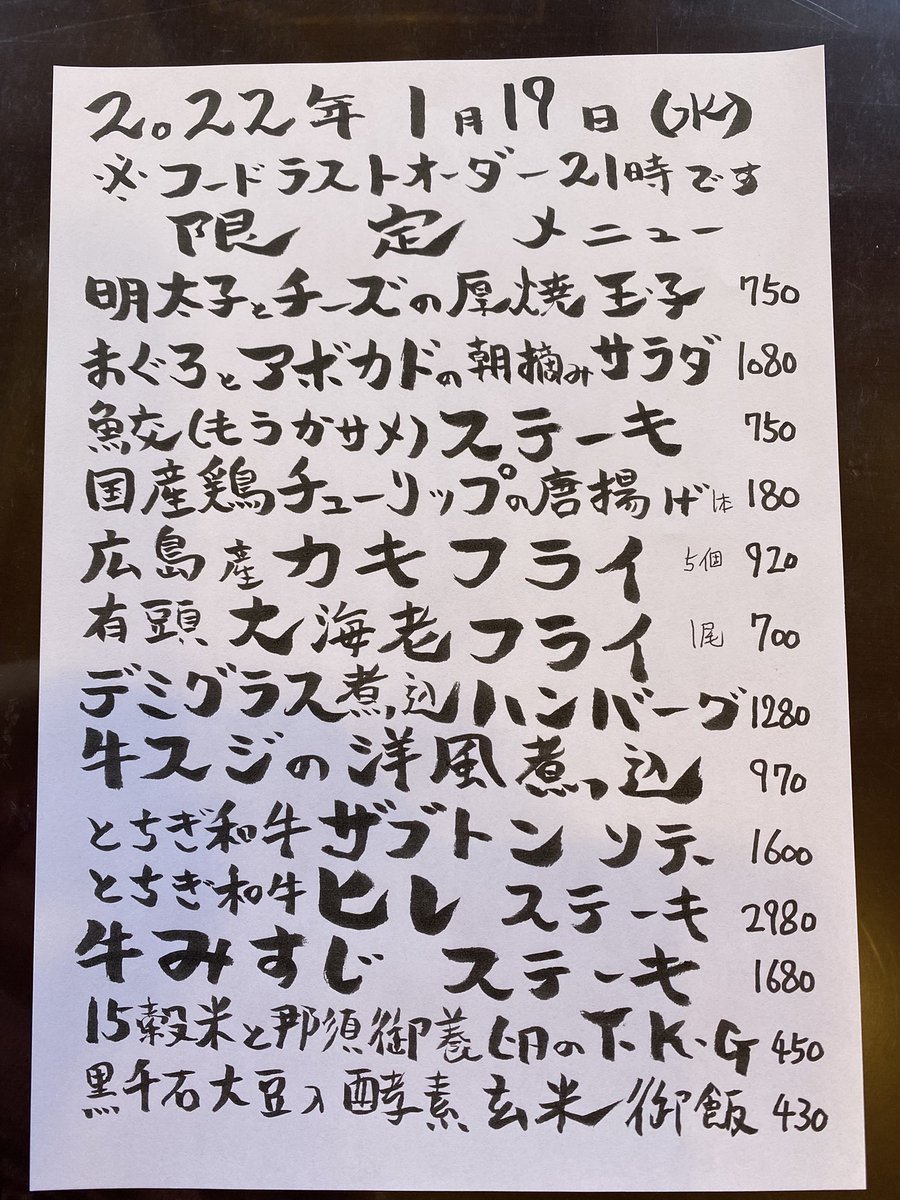 2022年1月19日(水)
※フードラストオーダー21時です
限定メニュー
明太子とチーズの厚焼玉子 750
まぐろとアボカドの朝摘みサラダ 1080
鮫(もうかサメ)ステーキ 750
国産鶏チューリップの唐揚げ 1本 180
広島産カキフライ 5個 920
有頭大海老フライ 1尾 700
デミグラス煮込ハンバーグ 1280
牛スジの洋風煮っ込 970
とちぎ和牛ザブトンソテー 1600
とちぎ和牛ヒレステーキ 2980
牛みすじステーキ 1680
15穀米と那須御養卵のT.K.G 450
黒千石大豆入酵素玄米御飯 430